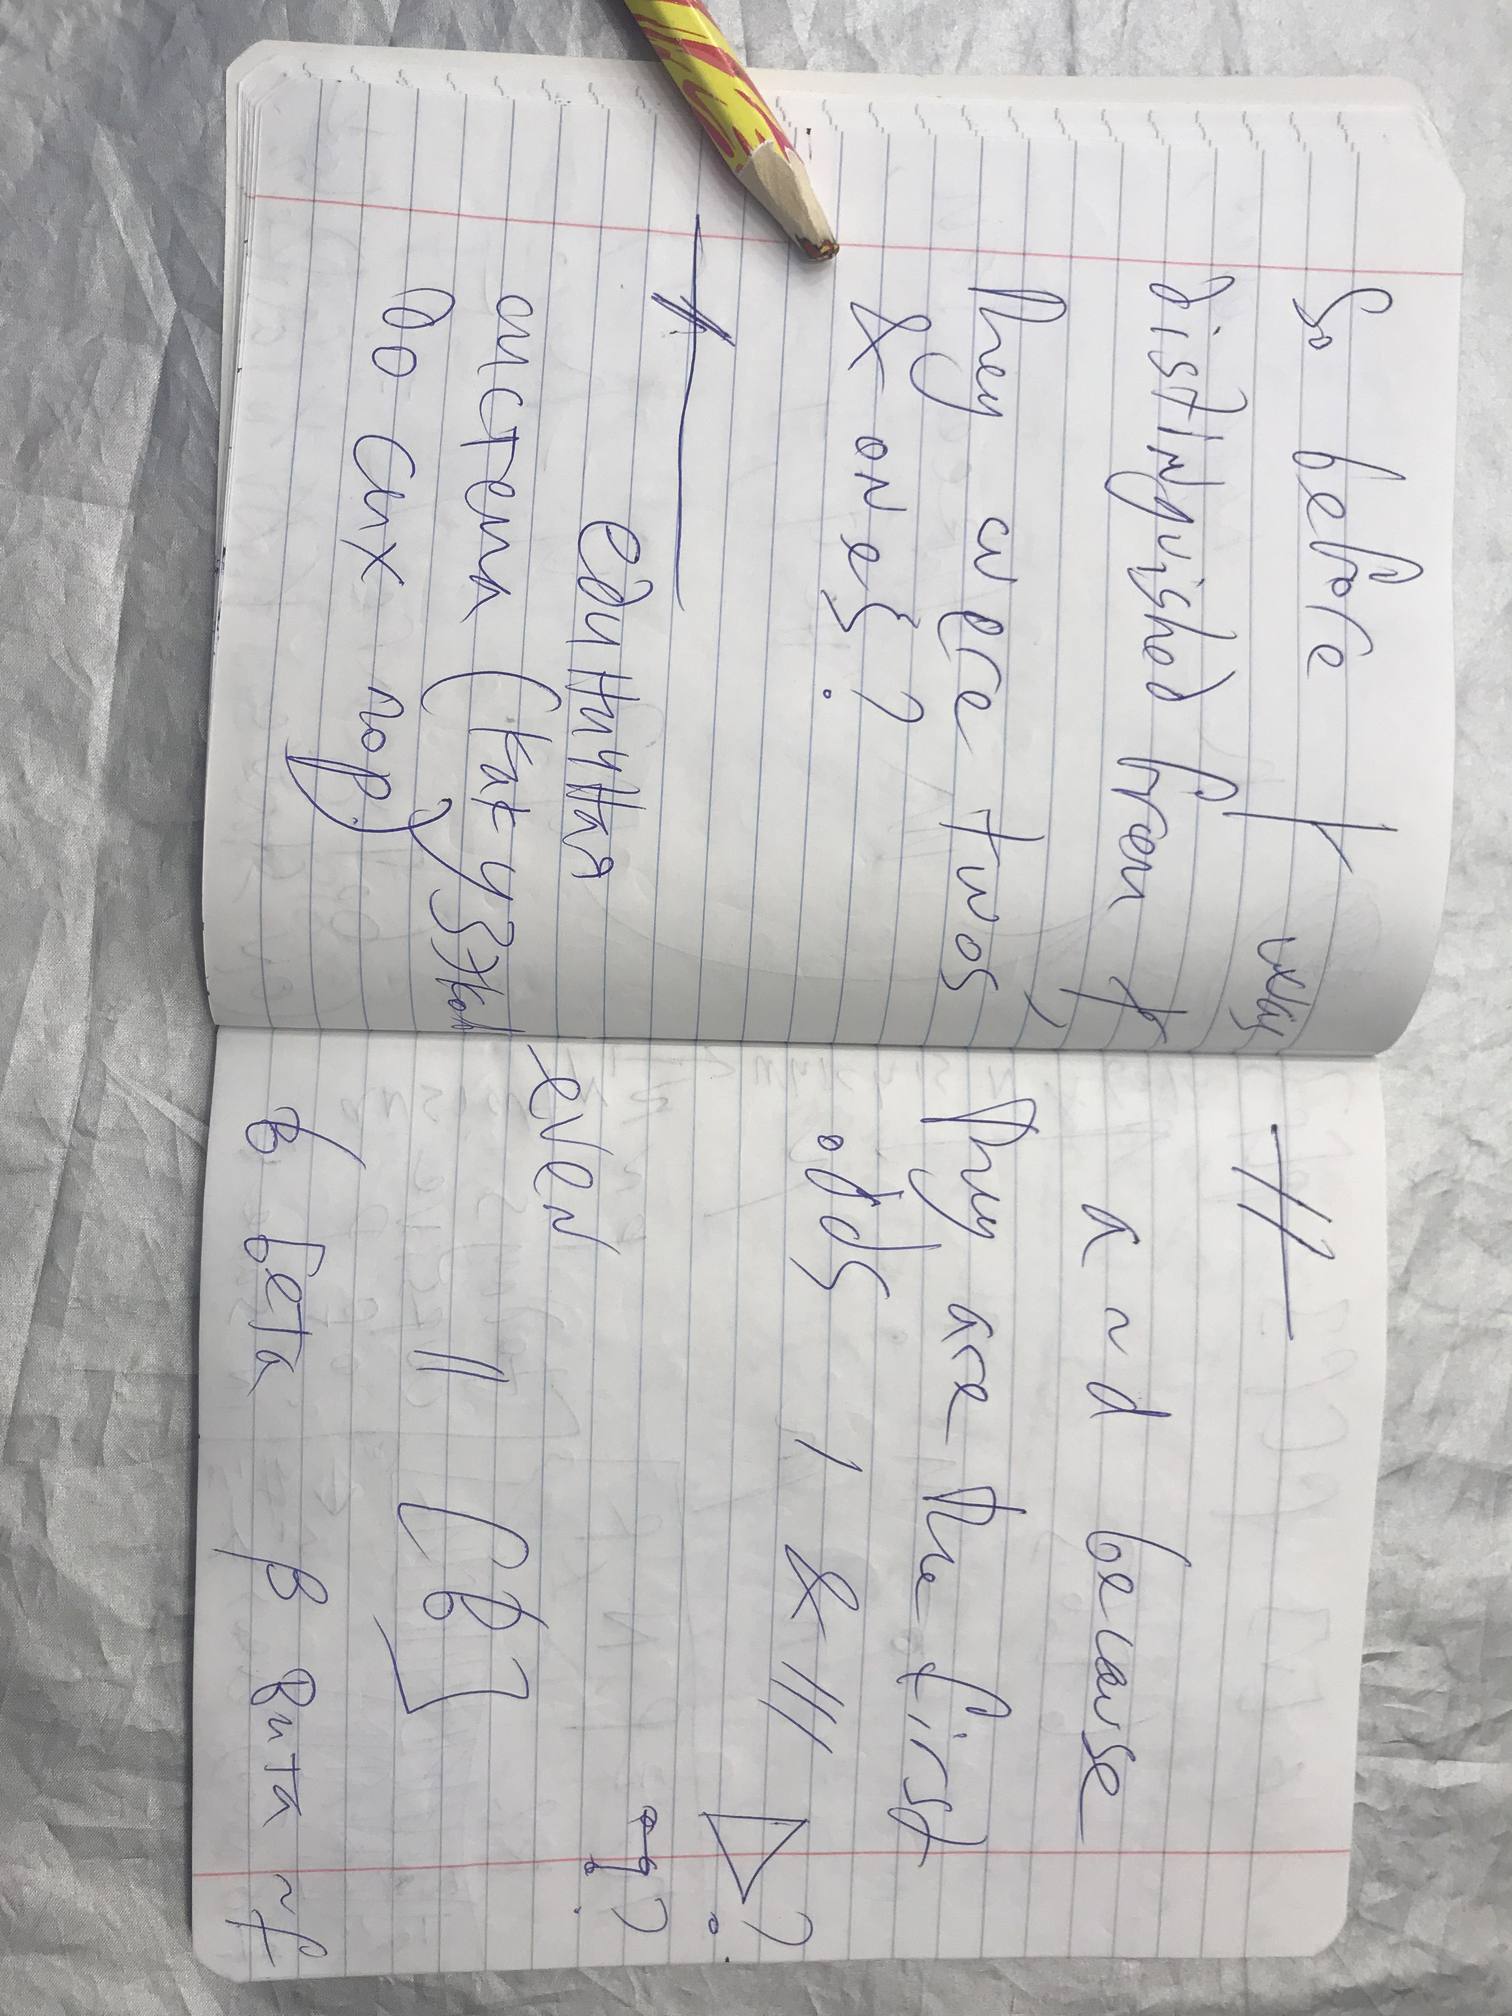 So before ↑ was
distinguished from ↑
they were twos,
& ones?
единичная
система (как у зэков
до сих пор)
and because
they are the first
odds, & |||
?
even
?
|| [B]
в бета β вита ~f